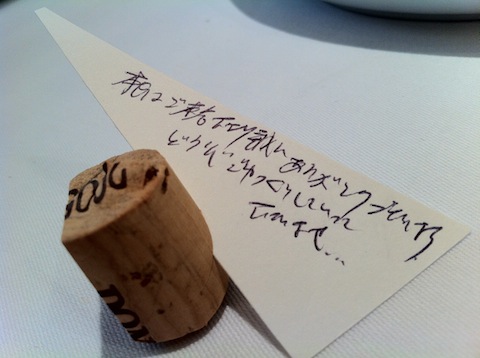 本日はご来店下さり誠にありがとうございます
どうぞごゆっくりしていって
下さいませ...